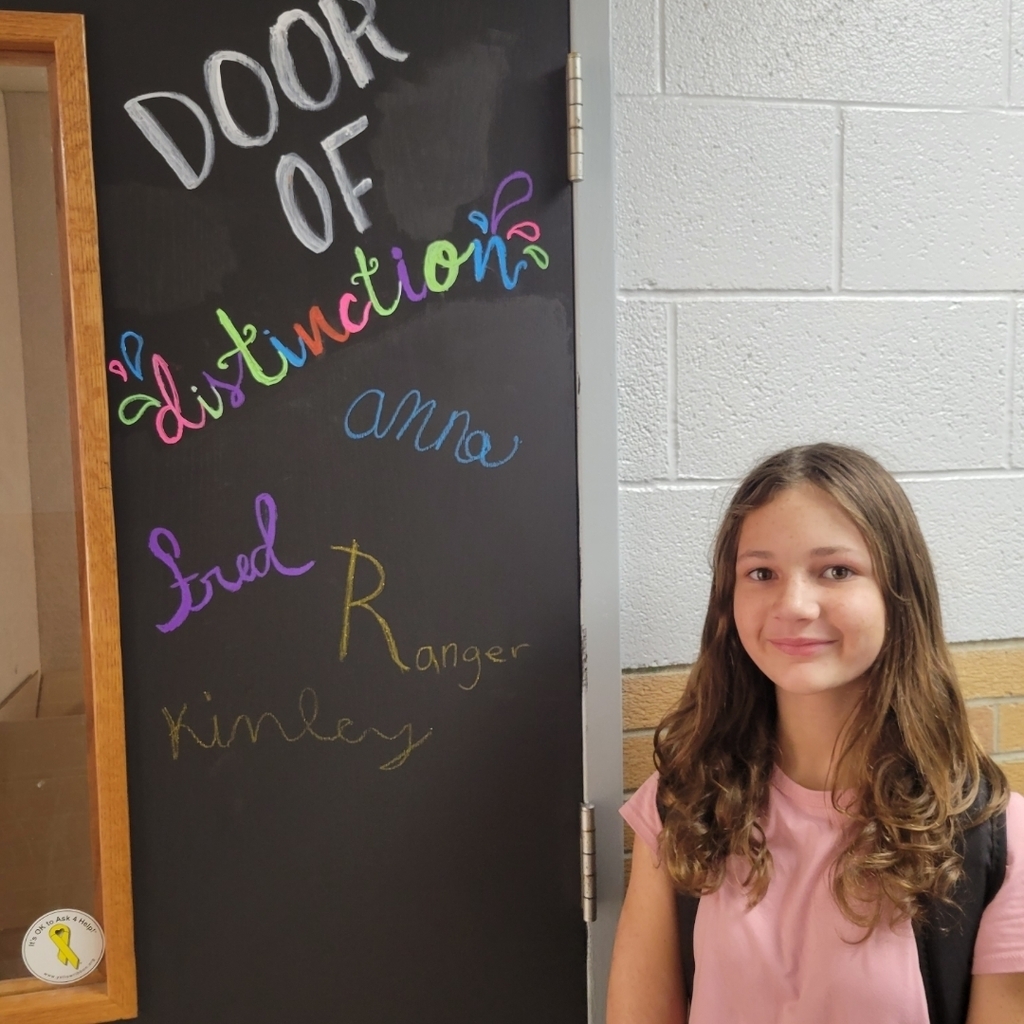 DOOR
OF
distinction
anna
fred
Ranger
Kinley
It's OK to Ask 4 Help!